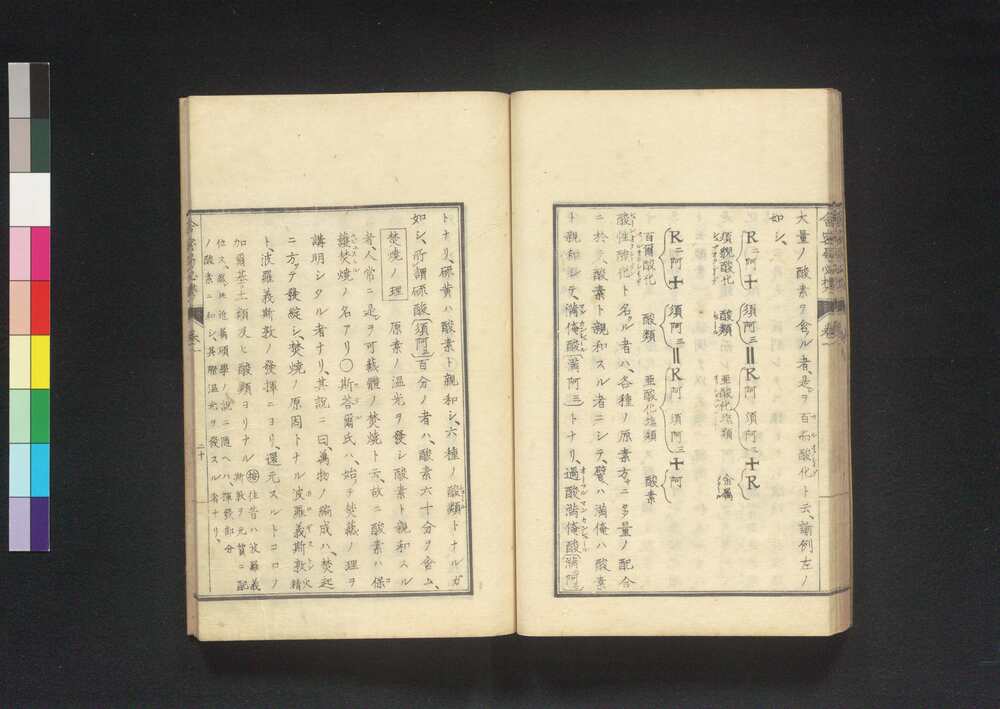 大量ノ酸素ヲ含ル者、是ヲ百而酸化ト云、諭例左ノ
如シ、
R二阿 + 須阿三 = R阿 須阿三 + 阿
百爾酸化 酸類 亜酸化塩類 酸素
R二阿 + 須阿三 = R阿 須阿三 + R
須貌酸化 酸類 亜酸化塩類 金属
酸性酸化ト名クル者ハ、各種ノ原素方サニ多量ノ配合
ニ於テ、酸素ト親和スル者ニシテ、譬ハ満俺ハ酸素
ト親和シテ、満俺酸 満阿三 トナリ、過酸満俺酸
トナリ、硫黄ハ酸素ト親和シ、六種ノ酸類トナルガ
如シ、所謂硫酸 須阿三 百分ノ者ハ、酸素六十分ヲ含ム、
焚焼ノ理 原素ノ温光ヲ發シ酸素ト親和スル
者、人常ニ是ヲ可蓺體ノ焚焼ト云、故ニ酸素ハ保
焚焼ノ名アリ〇斯荅爾氏ハ、始テ焚蓺ノ理ヲ
講明シタル者ナリ、其説ニ曰、萬物ノ編成ハ、焚起
ニ方ッテ發綻シ、焚焼ノ原因トナル波羅義斯敦 火精
ト、波羅義斯敦ノ發揮ニヨリ、還元スルトコロノ
加爾基土類及ヒ酸類ヨリナル 往昔ハ波羅義
斯敦ヲ元質ニ配
位ス、然ルニ近萬碩學ノ説ニ隨ヘハ、揮發部分
ノ酸素ニ和シ、其際温光ヲ發スル者ナリ、
巻一
二十